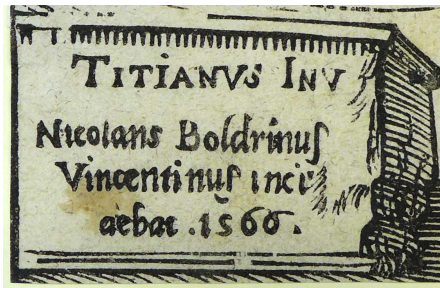 TITIANVS INV
Nicolaus Boldrinus
Vincentinus inci
debat .1566.